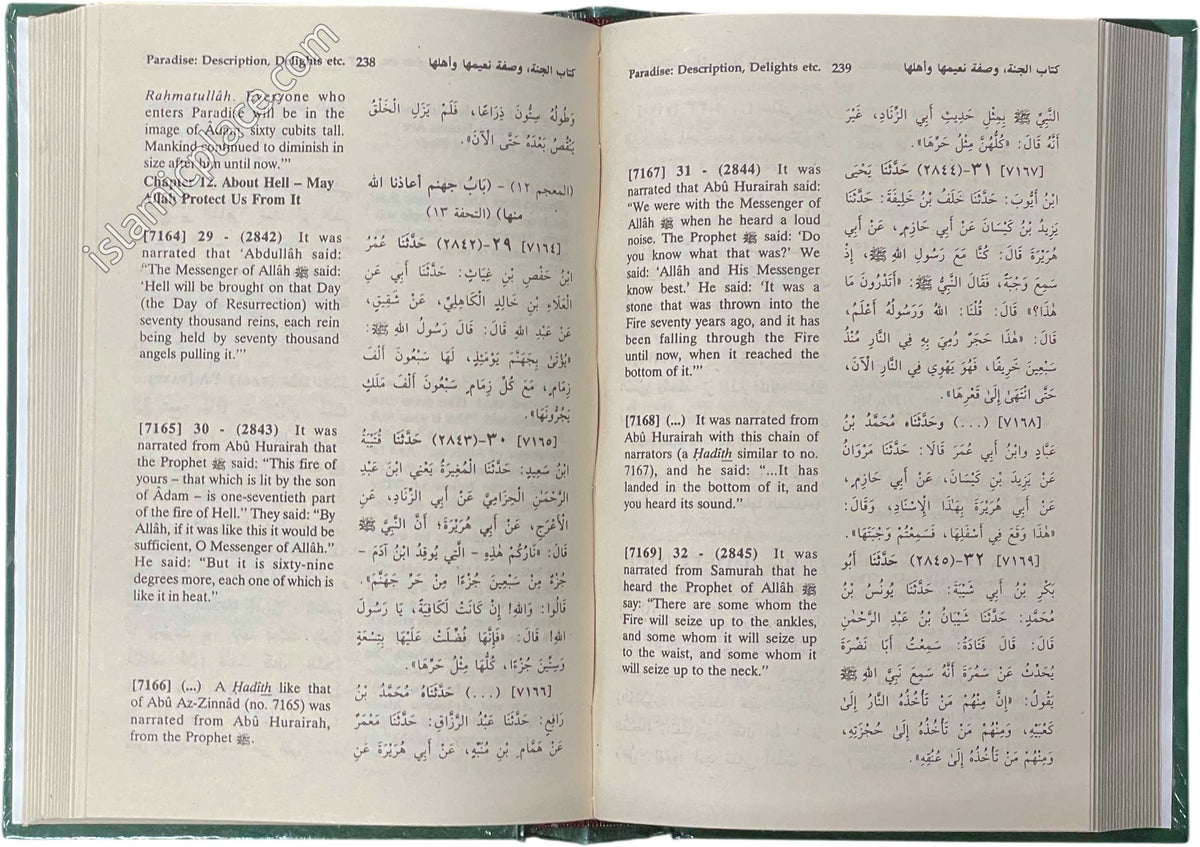 Paradise: Description, Delights etc. 238 كتاب الجنة، وصفة نعيمها وأهلها
Rahmatullâh. Everyone who
enters Paradise will be in the
image of Âdam, sixty cubits tall.
Mankind continued to diminish in
size after him until now.’”
Chapter 12. About Hell – May
Allâh Protect Us From It
[7164] 29 - (2842) It was
narrated that ‘Abdullâh said:
“The Messenger of Allâh ﷺ said:
‘Hell will be brought on that Day
(the Day of Resurrection) with
seventy thousand reins, each rein
being held by seventy thousand
angels pulling it.’”
[7165] 30 - (2843) It was
narrated from Abû Hurairah that
the Prophet ﷺ said: “This fire of
yours – that which is lit by the son
of Âdam – is one-seventieth part
of the fire of Hell.” They said: “By
Allâh, if it was like this it would be
sufficient, O Messenger of Allâh.”
He said: “But it is sixty-nine
degrees more, each one of which is
like it in heat.”
[7166] (...) A Ḥadîth like that
of Abû Az-Zinnâd (no. 7165) was
narrated from Abû Hurairah,
from the Prophet ﷺ.
وَطُولُهُ سِتُّونَ ذِرَاعًا، فَلَمْ يَزَلِ الْخَلْقُ
يَنْقُصُ بَعْدَهُ حَتَّى الْآنَ».
(المعجم ١٢) – (بَابُ جهنم أعاذنا الله
منها) (التحفة ١٣)
[٧١٦٤] ٢٩-(٢٨٤٢) حَدَّثَنَا عُمَرُ
ابْنُ حَفْصِ بْنِ غِيَاثٍ: حَدَّثَنَا أَبِي عَنِ
الْعَلَاءِ بْنِ خَالِدٍ الْكَاهِلِيِّ، عَنْ شَقِيقٍ،
عَنْ عَبْدِ اللهِ قَالَ: قَالَ رَسُولُ اللهِ ﷺ:
«يُؤْتَى بِجَهَنَّمَ يَوْمَئِذٍ، لَهَا سَبْعُونَ أَلْفَ
زِمَامٍ، مَعَ كُلِّ زِمَامٍ سَبْعُونَ أَلْفَ مَلَكٍ
يَجُرُّونَهَا».
[٧١٦٥] ٣٠-(٢٨٤٣) حَدَّثَنَا قُتَيْبَةُ
ابْنُ سَعِيدٍ: حَدَّثَنَا الْمُغِيرَةُ يَعْنِي ابْنَ عَبْدِ
الرَّحْمٰنِ الْحِزَامِيَّ عَنْ أَبِي الزِّنَادِ، عَنِ
الْأَعْرَجِ، عَنْ أَبِي هُرَيْرَةَ؛ أَنَّ النَّبِيَّ ﷺ
قَالَ: «نَارُكُمْ هٰذِهِ – الَّتِي يُوقِدُ ابْنُ آدَمَ –
جُزْءٌ مِنْ سَبْعِينَ جُزْءًا مِنْ حَرِّ جَهَنَّمَ».
قَالُوا: وَاللهِ! إِنْ كَانَتْ لَكَافِيَةً، يَا رَسُولَ
اللهِ! قَالَ: «فَإِنَّهَا فُضِّلَتْ عَلَيْهَا بِتِسْعَةٍ
وَسِتِّينَ جُزْءًا، كُلُّهَا مِثْلُ حَرِّهَا».
[٧١٦٦] (...) حَدَّثَنَاهُ مُحَمَّدُ بْنُ
رَافِعٍ: حَدَّثَنَا عَبْدُ الرَّزَّاقِ: حَدَّثَنَا مَعْمَرٌ
عَنْ هَمَّامِ بْنِ مُنَبِّهٍ، عَنْ أَبِي هُرَيْرَةَ عَنِ
Paradise: Description, Delights etc. 239 كتاب الجنة، وصفة نعيمها وأهلها
[7167] 31 - (2844) It was
narrated that Abû Hurairah said:
“We were with the Messenger of
Allâh ﷺ when he heard a loud
noise. The Prophet ﷺ said: ‘Do
you know what that was?’ We
said: ‘Allâh and His Messenger
know best.’ He said: ‘It was a
stone that was thrown into the
Fire seventy years ago, and it has
been falling through the Fire
until now, when it reached the
bottom of it.’”
[7168] (...) It was narrated from
Abû Hurairah with this chain of
narrators (a Ḥadîth similar to no.
7167), and he said: “...It has
landed in the bottom of it, and
you heard its sound.”
[7169] 32 - (2845) It was
narrated from Samurah that he
heard the Prophet of Allâh ﷺ
say: “There are some whom the
Fire will seize up to the ankles,
and some whom it will seize up
to the waist, and some whom it
will seize up to the neck.”
النَّبِيِّ ﷺ بِمِثْلِ حَدِيثِ أَبِي الزِّنَادِ، غَيْرَ
أَنَّهُ قَالَ: «كُلُّهُنَّ مِثْلُ حَرِّهَا».
[٧١٦٧] ٣١-(٢٨٤٤) حَدَّثَنَا يَحْيَى
ابْنُ أَيُّوبَ: حَدَّثَنَا خَلَفُ بْنُ خَلِيفَةَ: حَدَّثَنَا
يَزِيدُ بْنُ كَيْسَانَ عَنْ أَبِي حَازِمٍ، عَنْ أَبِي
هُرَيْرَةَ قَالَ: كُنَّا مَعَ رَسُولِ اللهِ ﷺ، إِذْ
سَمِعَ وَجْبَةً، فَقَالَ النَّبِيُّ ﷺ: «أَتَدْرُونَ مَا
هٰذَا؟» قَالَ: قُلْنَا: اللهُ وَرَسُولُهُ أَعْلَمُ،
قَالَ: «هٰذَا حَجَرٌ رُمِيَ بِهِ فِي النَّارِ مُنْذُ
سَبْعِينَ خَرِيفًا، فَهُوَ يَهْوِي فِي النَّارِ الْآنَ،
حَتَّى انْتَهَى إِلَى قَعْرِهَا».
[٧١٦٨] (...) وَحَدَّثَنَاه مُحَمَّدُ بْنُ
عَبَّادٍ وَابْنُ أَبِي عُمَرَ قَالَا: حَدَّثَنَا مَرْوَانُ
عَنْ يَزِيدَ بْنِ كَيْسَانَ، عَنْ أَبِي حَازِمٍ،
عَنْ أَبِي هُرَيْرَةَ بِهٰذَا الْإِسْنَادِ، وَقَالَ:
«هٰذَا وَقَعَ فِي أَسْفَلِهَا، فَسَمِعْتُمْ وَجْبَتَهَا».
[٧١٦٩] ٣٢-(٢٨٤٥) حَدَّثَنَا أَبُو
بَكْرِ بْنُ أَبِي شَيْبَةَ: حَدَّثَنَا يُونُسُ بْنُ
مُحَمَّدٍ: حَدَّثَنَا شَيْبَانُ بْنُ عَبْدِ الرَّحْمٰنِ
قَالَ: قَالَ قَتَادَةُ: سَمِعْتُ أَبَا نَضْرَةَ
يُحَدِّثُ عَنْ سَمُرَةَ أَنَّهُ سَمِعَ نَبِيَّ اللهِ ﷺ
يَقُولُ: «إِنَّ مِنْهُمْ مَنْ تَأْخُذُهُ النَّارُ إِلَى
كَعْبَيْهِ، وَمِنْهُمْ مَنْ تَأْخُذُهُ إِلَى حُجْزَتِهِ،
وَمِنْهُمْ مَنْ تَأْخُذُهُ إِلَى عُنُقِهِ».
islamicplace.com